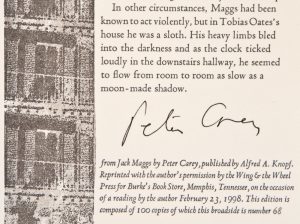 In other circumstances, Maggs had been
known to act violently, but in Tobias Oates's
house he was a sloth. His heavy limbs bled
into the darkness and as the clock ticked
loudly in the downstairs hallway, he seemed
to flow from room to room as slow as a
moon-made shadow.
Peter Carey
from Jack Maggs by Peter Carey, published by Alfred A. Knopf.
Reprinted with the author's permission by the Wing & the Wheel
Press for Burke's Book Store, Memphis, Tennessee, on the occasion
of a reading by the author February 23, 1998. This edition is
composed of 100 copies of which this broadside is number 68